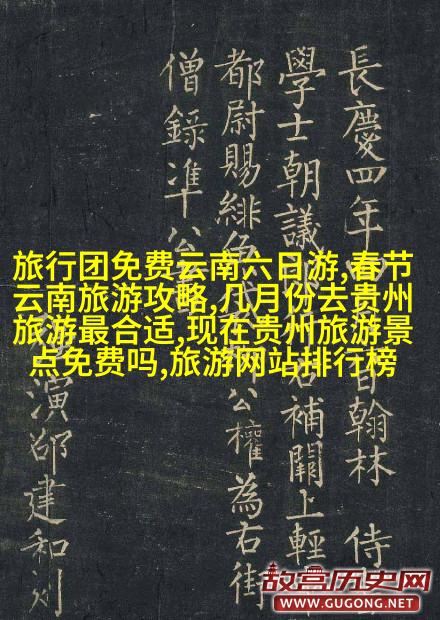 長慶四年 翰林 侍
學士朝議 右補闕上輕
都尉賜緋 公權為右街
僧錄准公
演邵建和刻
旅行团免费云南六日游,春节
云南旅游攻略,几月份去贵州
旅游最合适,现在贵州旅游景
点免费吗,旅游网站排行榜
故宫历史网
WWW.GUGONG.NET